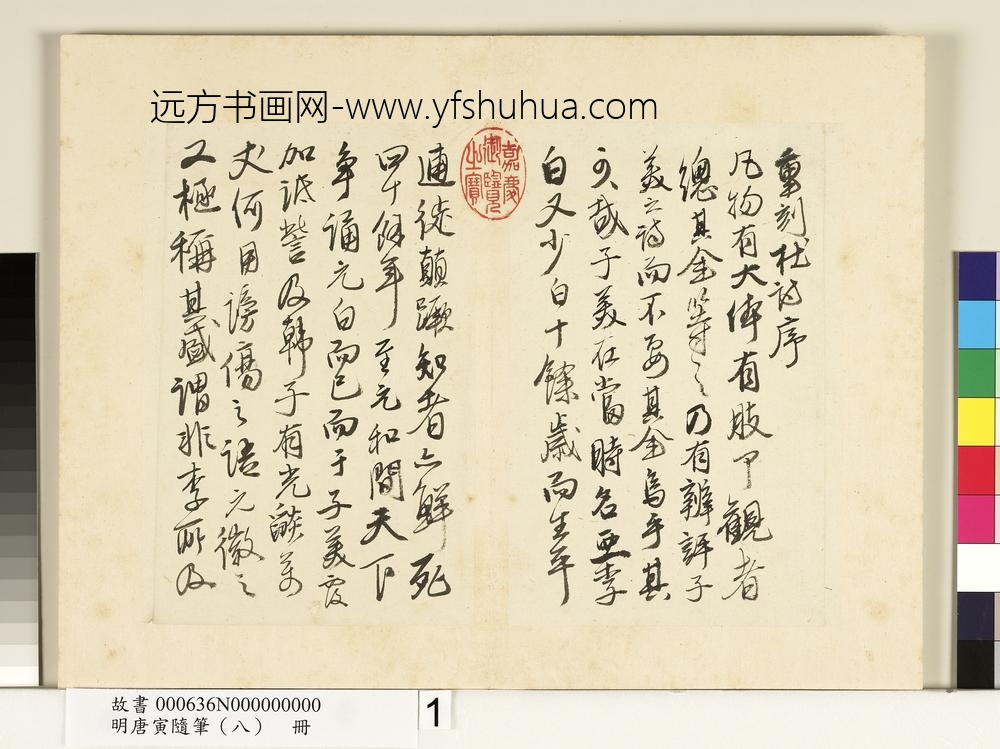 远方书画网-www.yfshuhua.com
重刻杜詩序
凡物有大体有肢甲觀者
總其全等之乃有辨評子
美之詩而不要其全烏乎其
可哉子美在當時名亞李
白又少白十餘歲而生平
逋徙顛躓知者亦鮮死
四十餘年至元和間天下
爭誦元白而已而于子美復
加詆訾及韓子有光燄萬
丈何用謗傷之語元微之
又極稱其盛謂非李所及
嘉慶
御覽
之寶
故書 000636N000000000
明唐寅隨筆（八） 冊
1